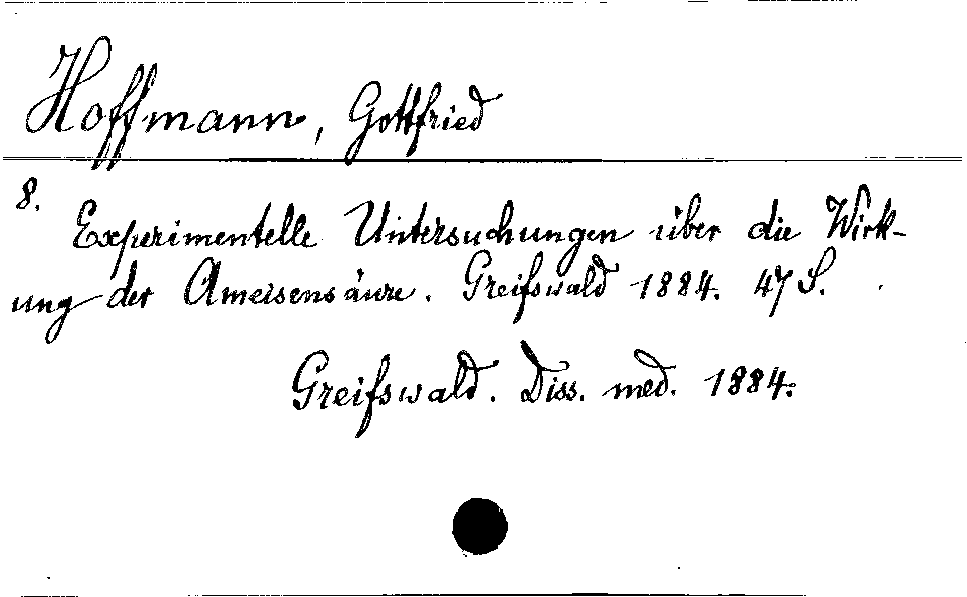 Hoffmann, Gottfried
8. Experimentelle Untersuchungen über die Wirk-
ung der Ameisensäure. Greifswald 1884. 47 S.
Greifswald. Diss. med. 1884.